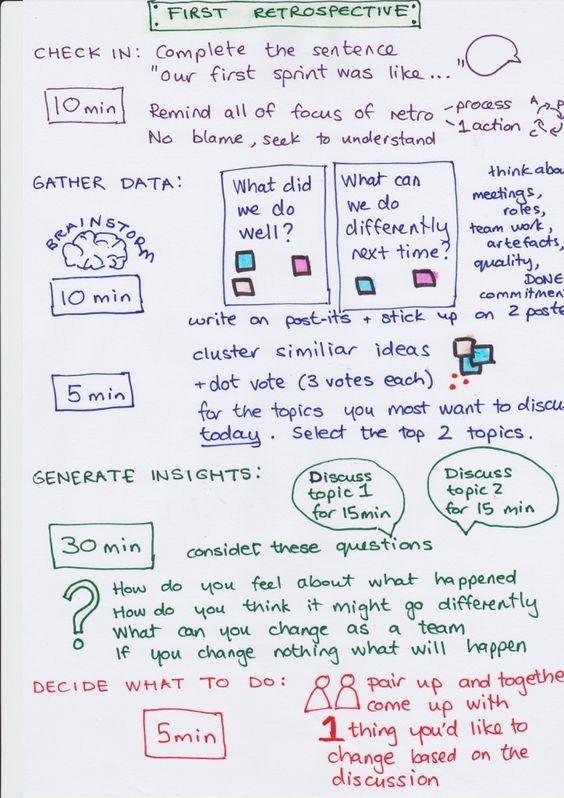 FIRST RETROSPECTIVE
CHECK IN: Complete the sentence
"Our first sprint was like...
"
10 min
Remind all of focus of retro
- process
- 1 action
A
C
No blame, seek to understand
GATHER DATA:
BRAINSTORM
10 min
What did
we do
well?
What can
we do
differently
next time?
think abou
meetings,
roles,
team work,
artefacts,
quality,
DONE
commitmen
write on post-its + stick up on 2 poste
cluster similiar ideas
5 min
+ dot vote (3 votes each)
for the topics you most want to discu
today. Select the top 2 topics.
GENERATE INSIGHTS:
Discuss
topic 1
for 15min
Discuss
topic 2
for 15 min
30 min
consider these questions
?
How do you feel about what happened
How do you think it might go differently
What can you change as a team
If you change nothing what will happen
DECIDE WHAT TO DO:
5 min
pair up and togethe
come up with
1 thing you'd like to
change based on the
discussion